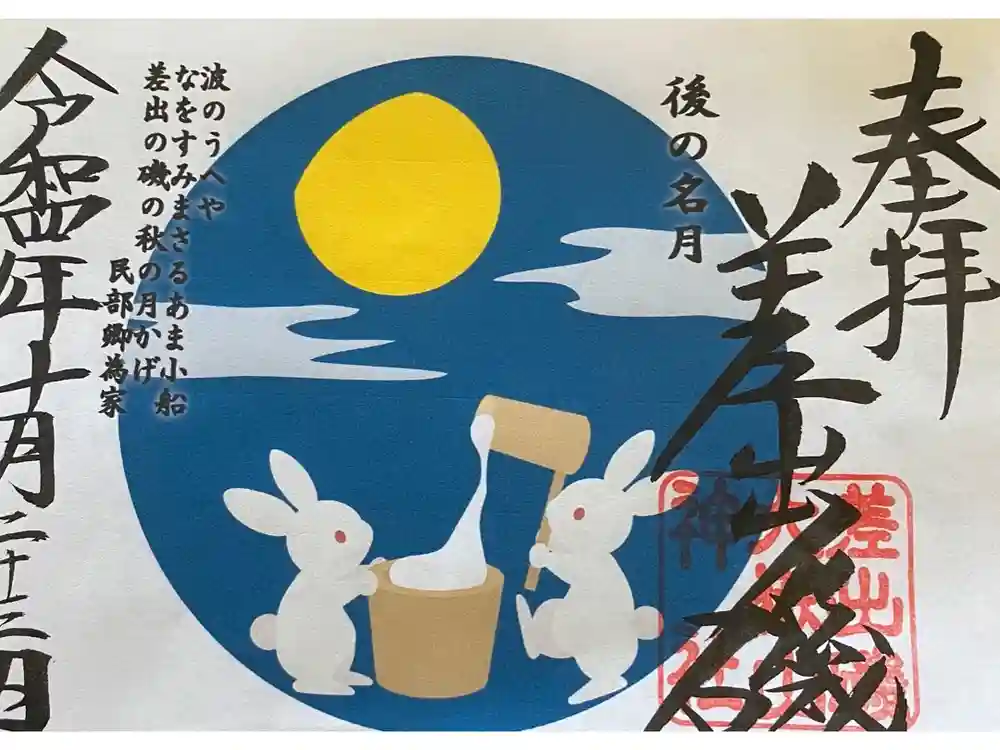 奉拝
差出磯
差出磯
大嶽山
神社
後の名月
波のうへや
なをすみまさるあま小船
差出の磯の秋の月かげ
民部卿為家
令和四年十月二十三日